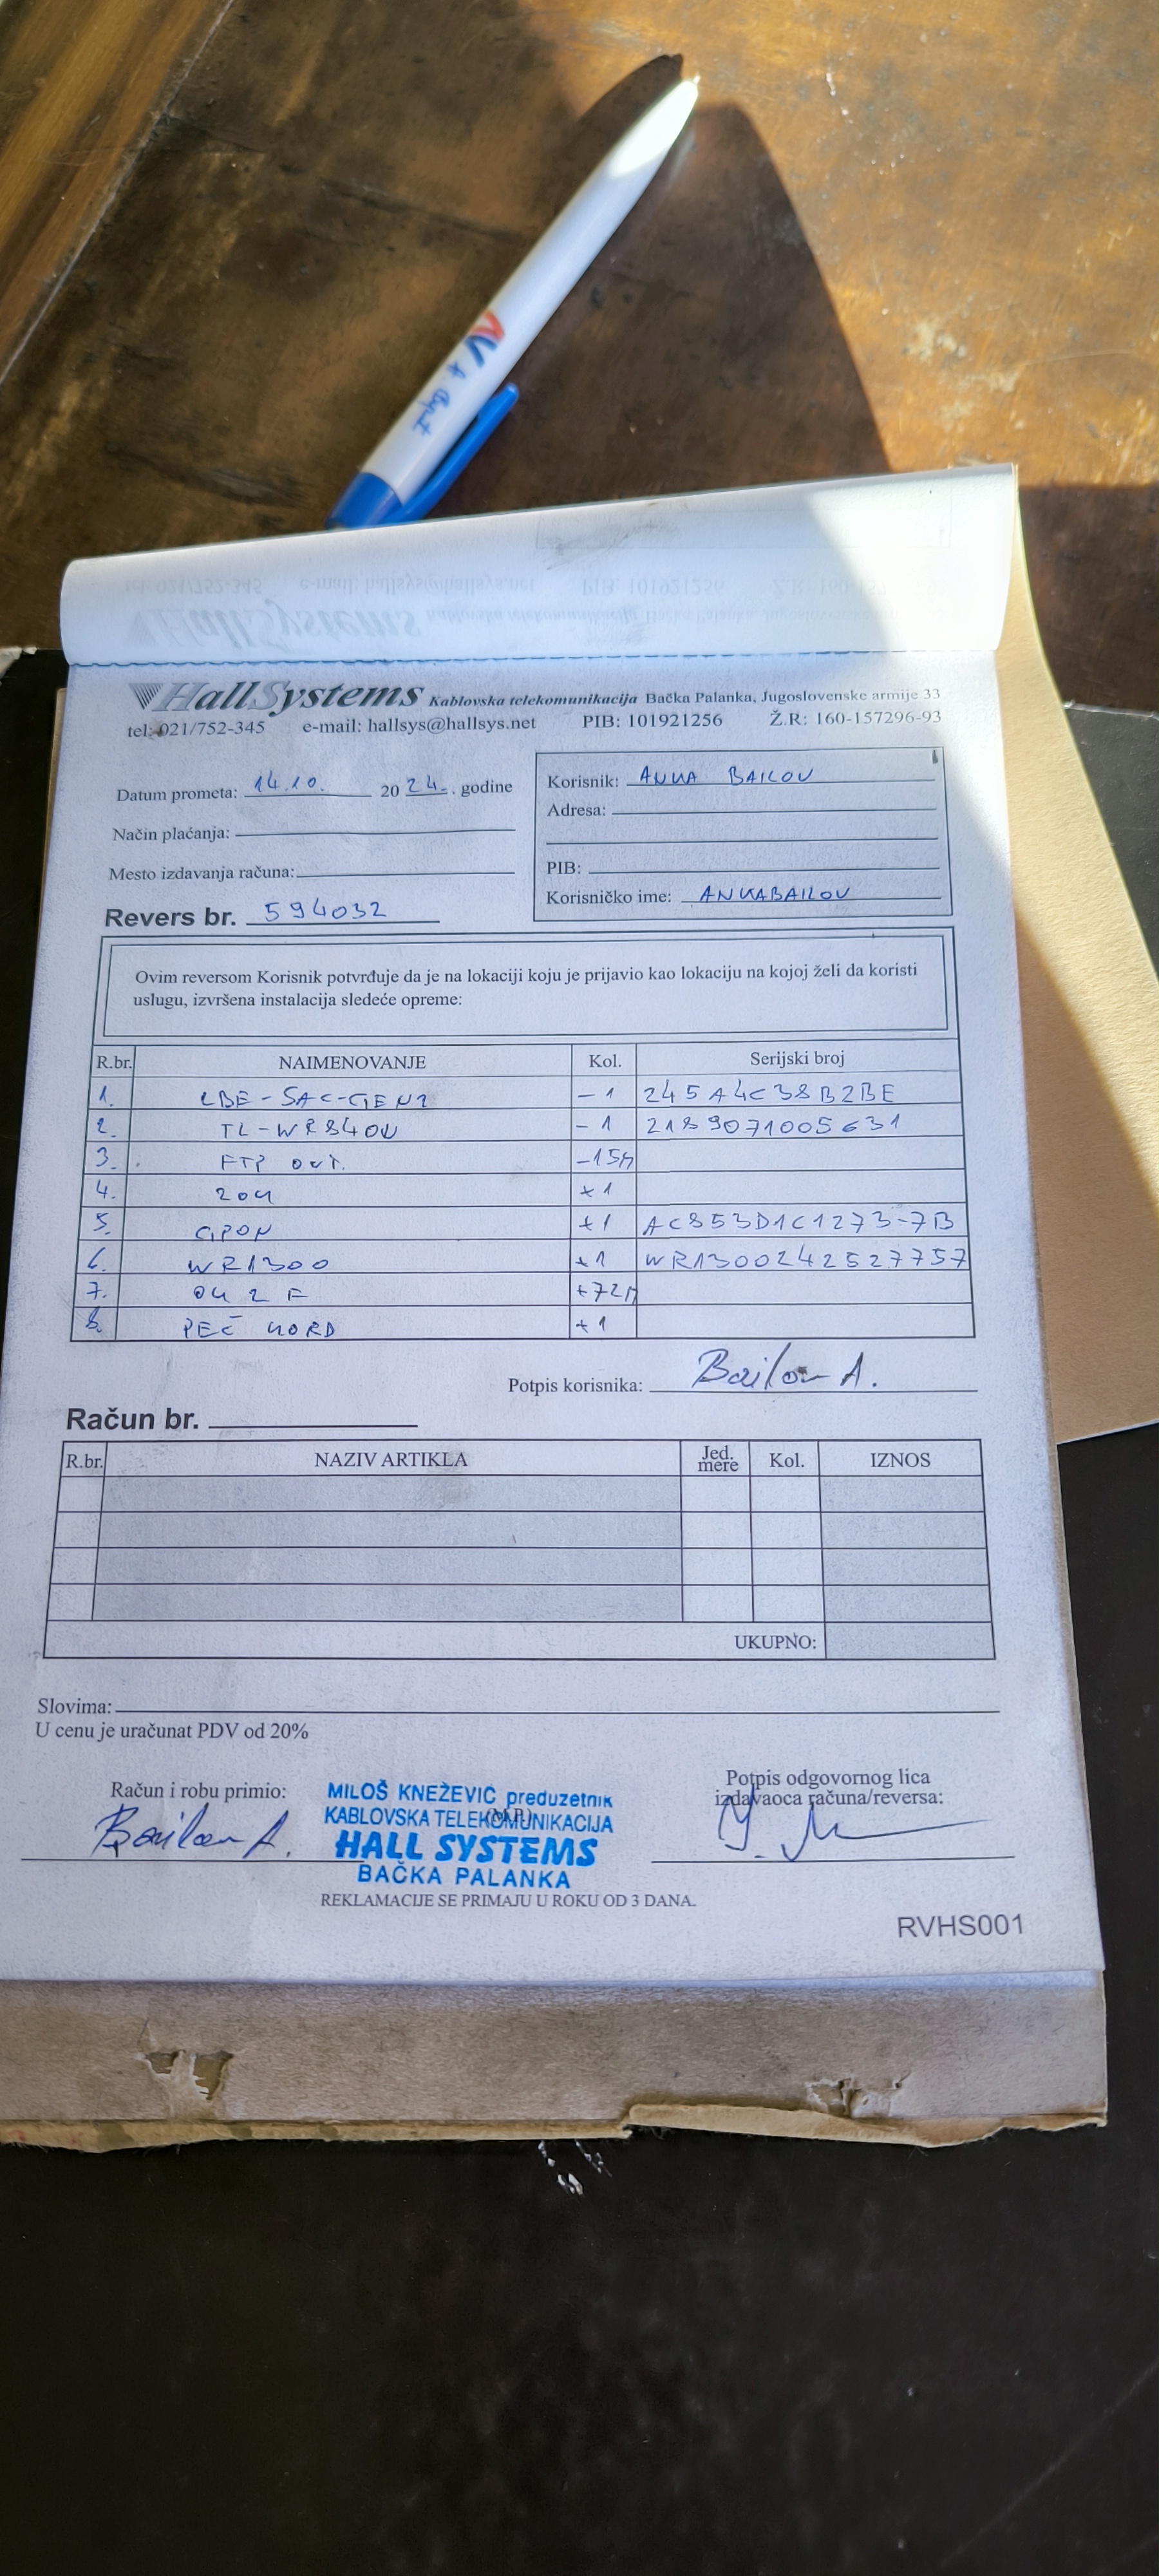 HallSystems Kablovska telekomunikacija Bačka Palanka, Jugoslovenske armije 33
tel: 021/752-345 e-mail: hallsys@hallsys.net PIB: 101921256 Ž.R: 160-157296-93
Datum prometa: 14.10. 20 24. . godine
Način plaćanja:
Mesto izdavanja računa:
Revers br. 594032
Korisnik: ANKA BAILOV
Adresa:
PIB:
Korisničko ime: ANKABAILOV
Ovim reversom Korisnik potvrđuje da je na lokaciji koju je prijavio kao lokaciju na kojoj želi da koristi
uslugu, izvršena instalacija sledeće opreme:
R.br. NAIMENOVANJE Kol. Serijski broj
1. LBE-5AC-GEN2 -1 245A4C38B2BE
2. TL-WR840N -1 2189071005631
3. FTP OUT. -15m
4. ZOK +1
5. GPON +1 AC853D1C1273-7B
6. WR1300 +1 WR1300242527757
7. OK 2 F +72m
8. PEČ KORD +1
Potpis korisnika: Bailov A.
Račun br.
R.br. NAZIV ARTIKLA Jed. mere Kol. IZNOS
UKUPNO:
Slovima:
U cenu je uračunat PDV od 20%
Račun i robu primio:
Bailov A.
MILOŠ KNEŽEVIĆ preduzetnik
KABLOVSKA TELEKOMUNIKACIJA
(M.P.)
HALL SYSTEMS
BAČKA PALANKA
Potpis odgovornog lica
izdavaoca računa/reversa:
REKLAMACIJE SE PRIMAJU U ROKU OD 3 DANA.
RVHS001